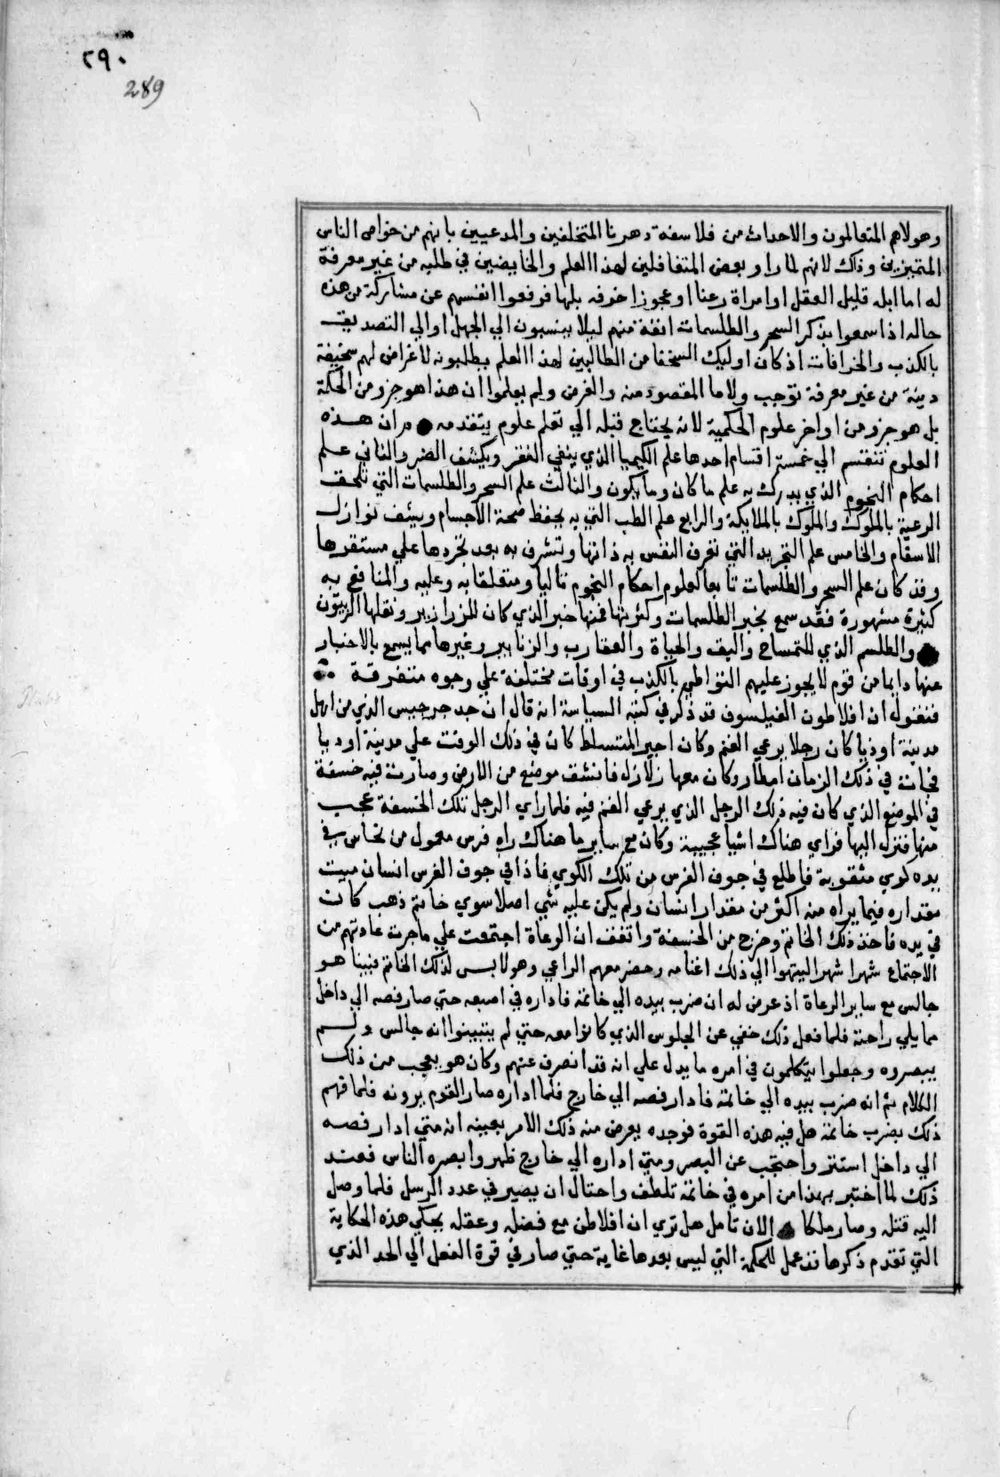 ٢٩٠
289
وهولاهم المتعالمون والاحداث من فلاسفة دهرنا المتخلفين والمدعيين بانهم من خواص الناس
المتميزين وذلك لانهم لما راو بعض المتعاقلين لهذا العلم والخايضين في طلبه من غير معرفة
له اما ابله قليل العقل او امراة رعنا او عجوز اخرفه بلها فرفعوا انفسهم عن مشاركة من هذه
حاله اذا سمعوا بذكر السحر والطلسمات انفة منهم ليلا ينسبون الي الجهل او الي التصديق
بالكذب والخرافات اذ كان اوليك السخفا من الطالبين لهذا العلم يطلبونه لاغراض لهم سخيفة
دينة من غير معرفة توجب ولا ما المقصود منه والغرض ولم يعلموا ان هذا هو جزو من الحكمة
بل هو جزو من اواخر علوم الحكمية لانه يحتاج قبله الي تعلم علوم يتقدمه من ان هذه
العلوم تنقسم الي خمسة اقسام احدها علم الكيميا الذي ينفي الفقر ويكشف الضر والثاني علم
احكام النجوم الذي يدرك به علم ما كان وما يكون والثالث علم السحر والطلسمات التي تلحق
الرعية بالملوك والملوك بالملايكة والرابع علم الطب التي به يحفظ صحة الاجسام ويشف نوازل
الاسقام والخامس علم التجريد التي تعرف النفس به ذاتها وتشرف به بعد تجردها علي مستقرها
وقد كان علم السحر والطلسمات تابعا لعلوم احكام النجوم تاليا ومتعلقا به وعليه والمنافع به
كثيرة مشهورة فقد سمع بخبر الطلسمات وكثرتها فمنها خبر الذي كان للزرازير ونقلها الزيتون
والطلسم الذي للتمساح والبق والحياة والعقارب والزنابير وغيرها مما يسمع بالاخبار
عنها دايما من قوم لا يجوز عليهم التواطي بالكذب في اوقات مختلفة علي وجوه متفرقة
فنقول ان افلاطون الفيلسوف قد ذكر في كتبه السياسة انه قال ان جد جرجيس الذي من اهل
مدينة اوذيا كان رجلا يرعي الغنم وكان اجير المتسلط كان في ذلك الوقت علي مدينة اوديا
فجات في ذلك الزمان امطار وكان معها زلازل فانشف موضع من الارض وصارت فيه خسفة
في الموضع الذي كان فيه ذلك الرجل الذي يرعي الغنم فيه فلما راي الرجل تلك الخسفة عجب
منها فنزل اليها فراي هناك اشيا عجيبة وكان مع ساير ما هناك راه فرس معمول من نحاس في
يده كوي مثقوبة فاطلع في جوف الفرس من تلك الكوي فاذا في جوف الفرس انسان ميت
مقداره فيما يراه منه اكثر من مقدار انسان ولم يكن عليه شي اصلا سوي خاتم ذهب كانت
في يده فاخذ ذلك الخاتم وخرج من الخسفة واتفق ان الرعاة اجتمعت علي ما جرت عادتهم من
الاجتماع شهرا شهرا لينهوا الي ذلك اغنامه وحضر معهم الراعي وهو لابس لذلك الخاتم فبينا هو
جالس مع ساير الرعاة اذ عرض له ان ضرب بيده الي خاتمة فاداره في اصبعه حتي صار فصه الي داخل
مما يلي راحته فلما فعل ذلك خفي عن الجلوس الذي كانوا معه حتي لم يتبينوا انه جالس ولم
يبصروه وجعلوا يتكلمون في امره ما يدل علي انه قد انصرف عنهم وكان هو يعجب من ذلك
الكلام ثم انه ضرب بيده الي خاتمة فادار فصه الي خارج فلما اداره صار القوم يرونه فلما فهم
ذلك بضرب خاتمة هل فيه هذه القوة فوجده يعرض منه ذلك الامر بعينه انه متي ادار فصه
الي داخل استتر واحتجب عن البصر ومتي اداره الي خارج ظهر وابصره الناس فعند
ذلك لما اختبر بهذا من امره في خاتمة تلطف واحتال ان يصير في عدد الرسل فلما وصل
اليه قتله وصار ملكا الان تامل هل تري ان افلاطن مع فضله وعقله يحكي هذه الحكاية
التي تقدم ذكرها عمل للحكمة التي ليس بعدها غاية حتي صار في قوة الفعل الي الحد الذي